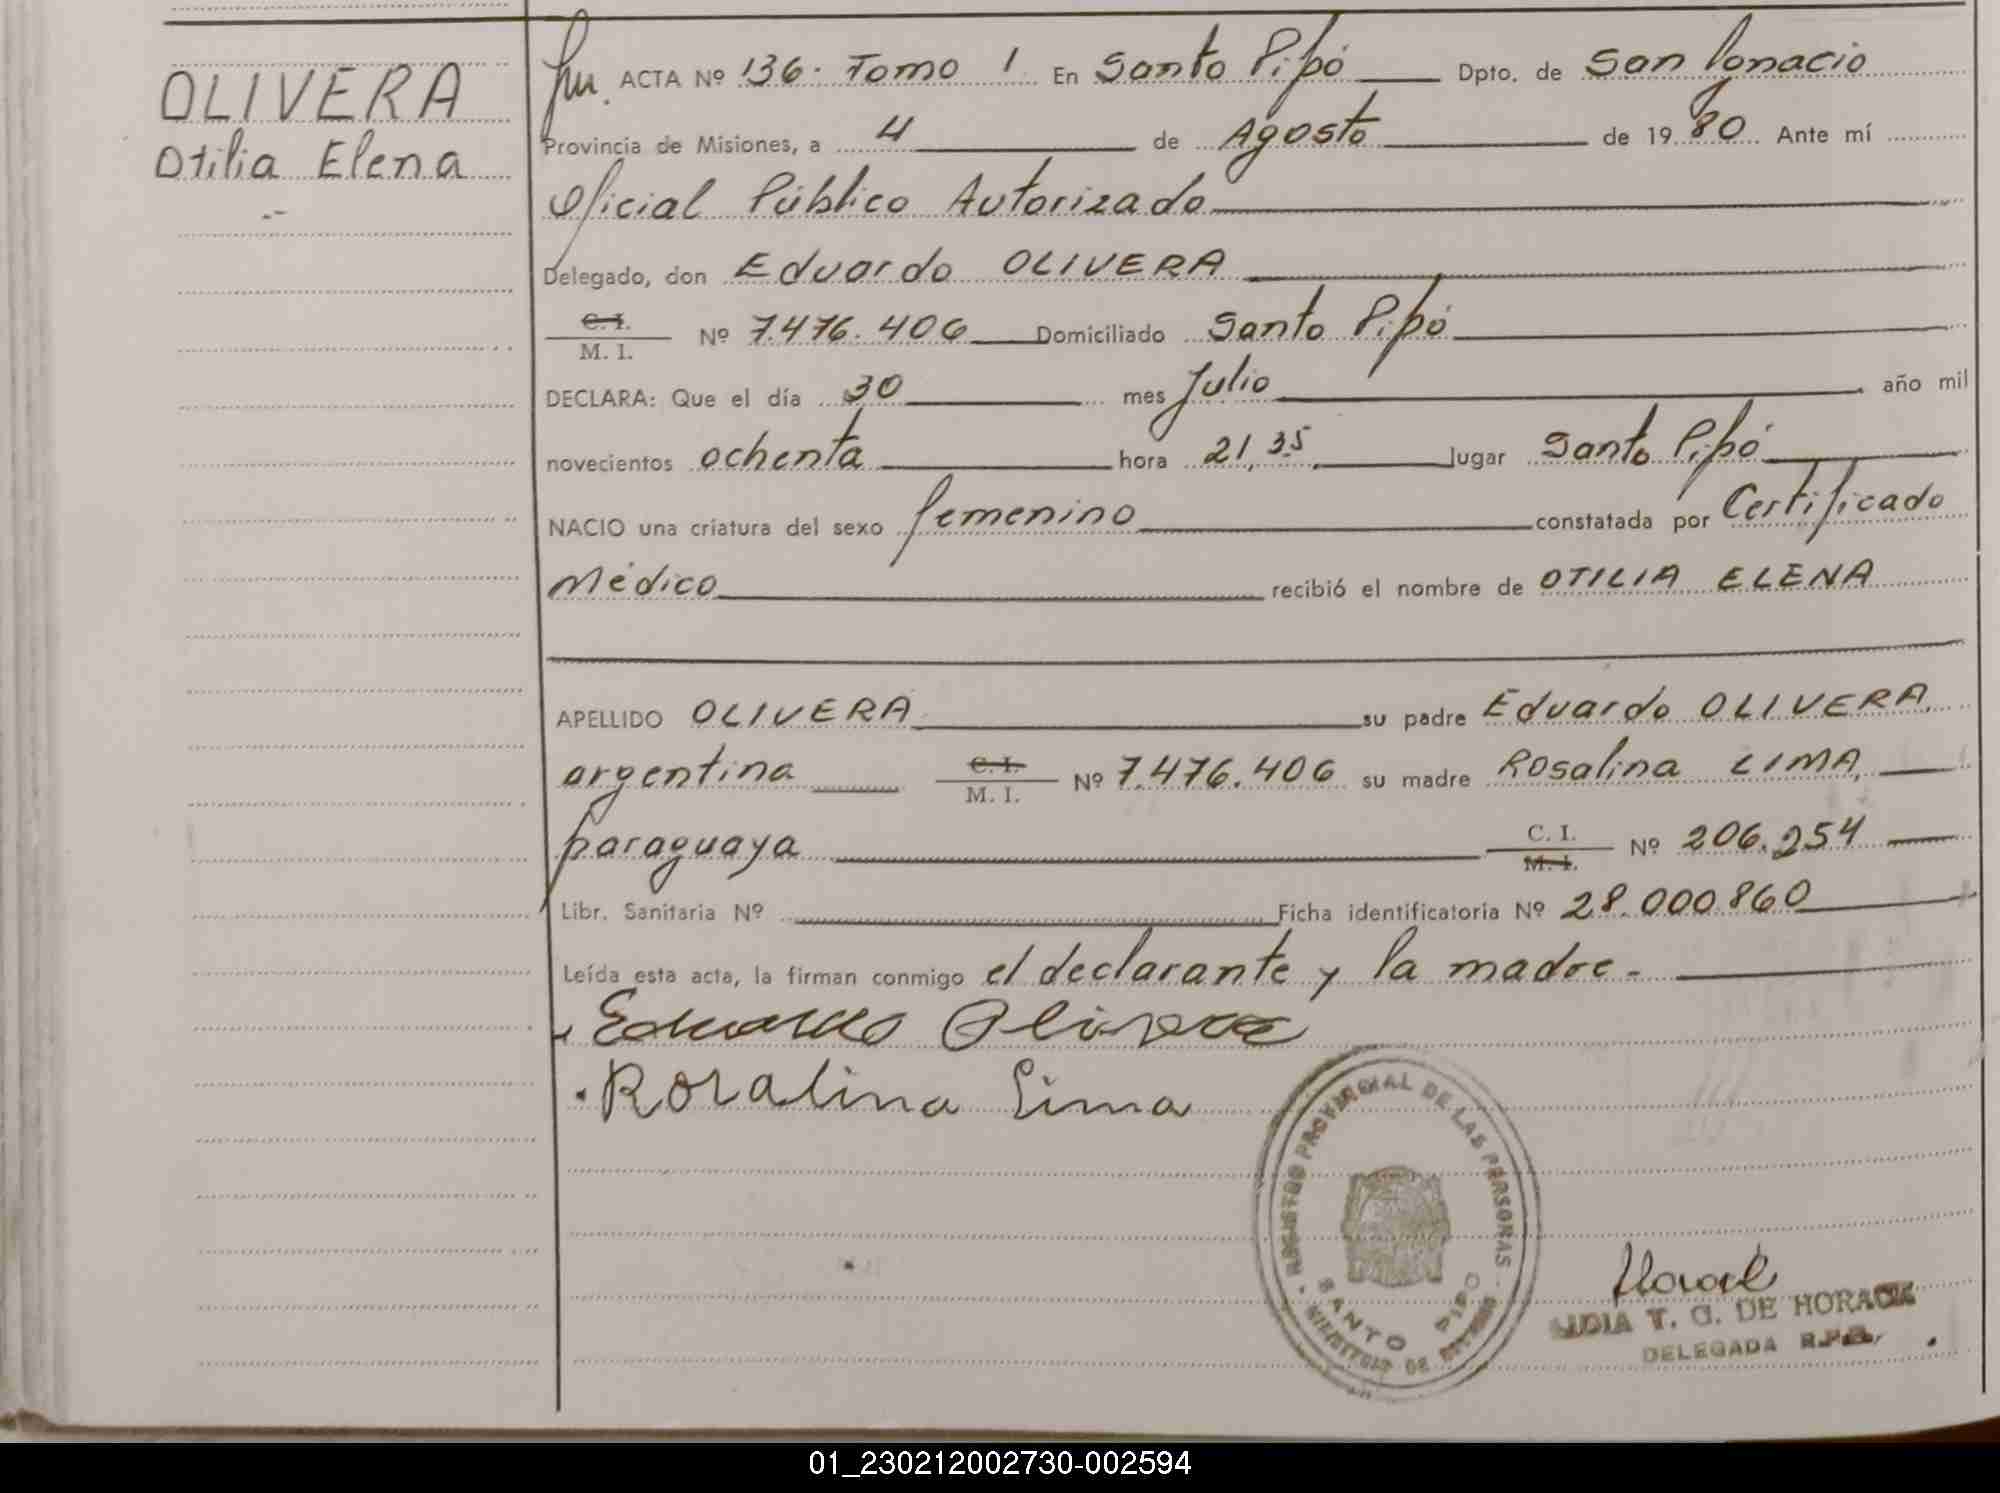 OLIVERA
Otilia Elena
ACTA Nº 136. Tomo 1 En Santo Pipó Dpto. de San Ignacio
Provincia de Misiones, a 4 de Agosto de 1980 Ante mí
Oficial Público Autorizado
Delegado, don Eduardo OLIVERA
C. I. / M. I. Nº 7.476.406 Domiciliado Santo Pipó
DECLARA: Que el día 30 mes Julio año mil
novecientos ochenta hora 21,35 lugar Santo Pipó
NACIO una criatura del sexo femenino constatada por Certificado
Médico recibió el nombre de OTILIA ELENA
APELLIDO OLIVERA su padre Eduardo OLIVERA,
argentina C. I. / M. I. Nº 7.476.406 su madre Rosalina LIMA,
paraguaya C. I. / M. I. Nº 206.254
Libr. Sanitaria Nº Ficha identificatoria Nº 28.000.860
Leída esta acta, la firman conmigo el declarante y la madre.-
Eduardo Olivera
Rosalina Lima
REGISTRO PROVINCIAL DE LAS PERSONAS
SANTO PIPO
MINISTERIO DE
LIDIA T. G. DE HORACK
DELEGADA R.P.P.
01_230212002730-002594